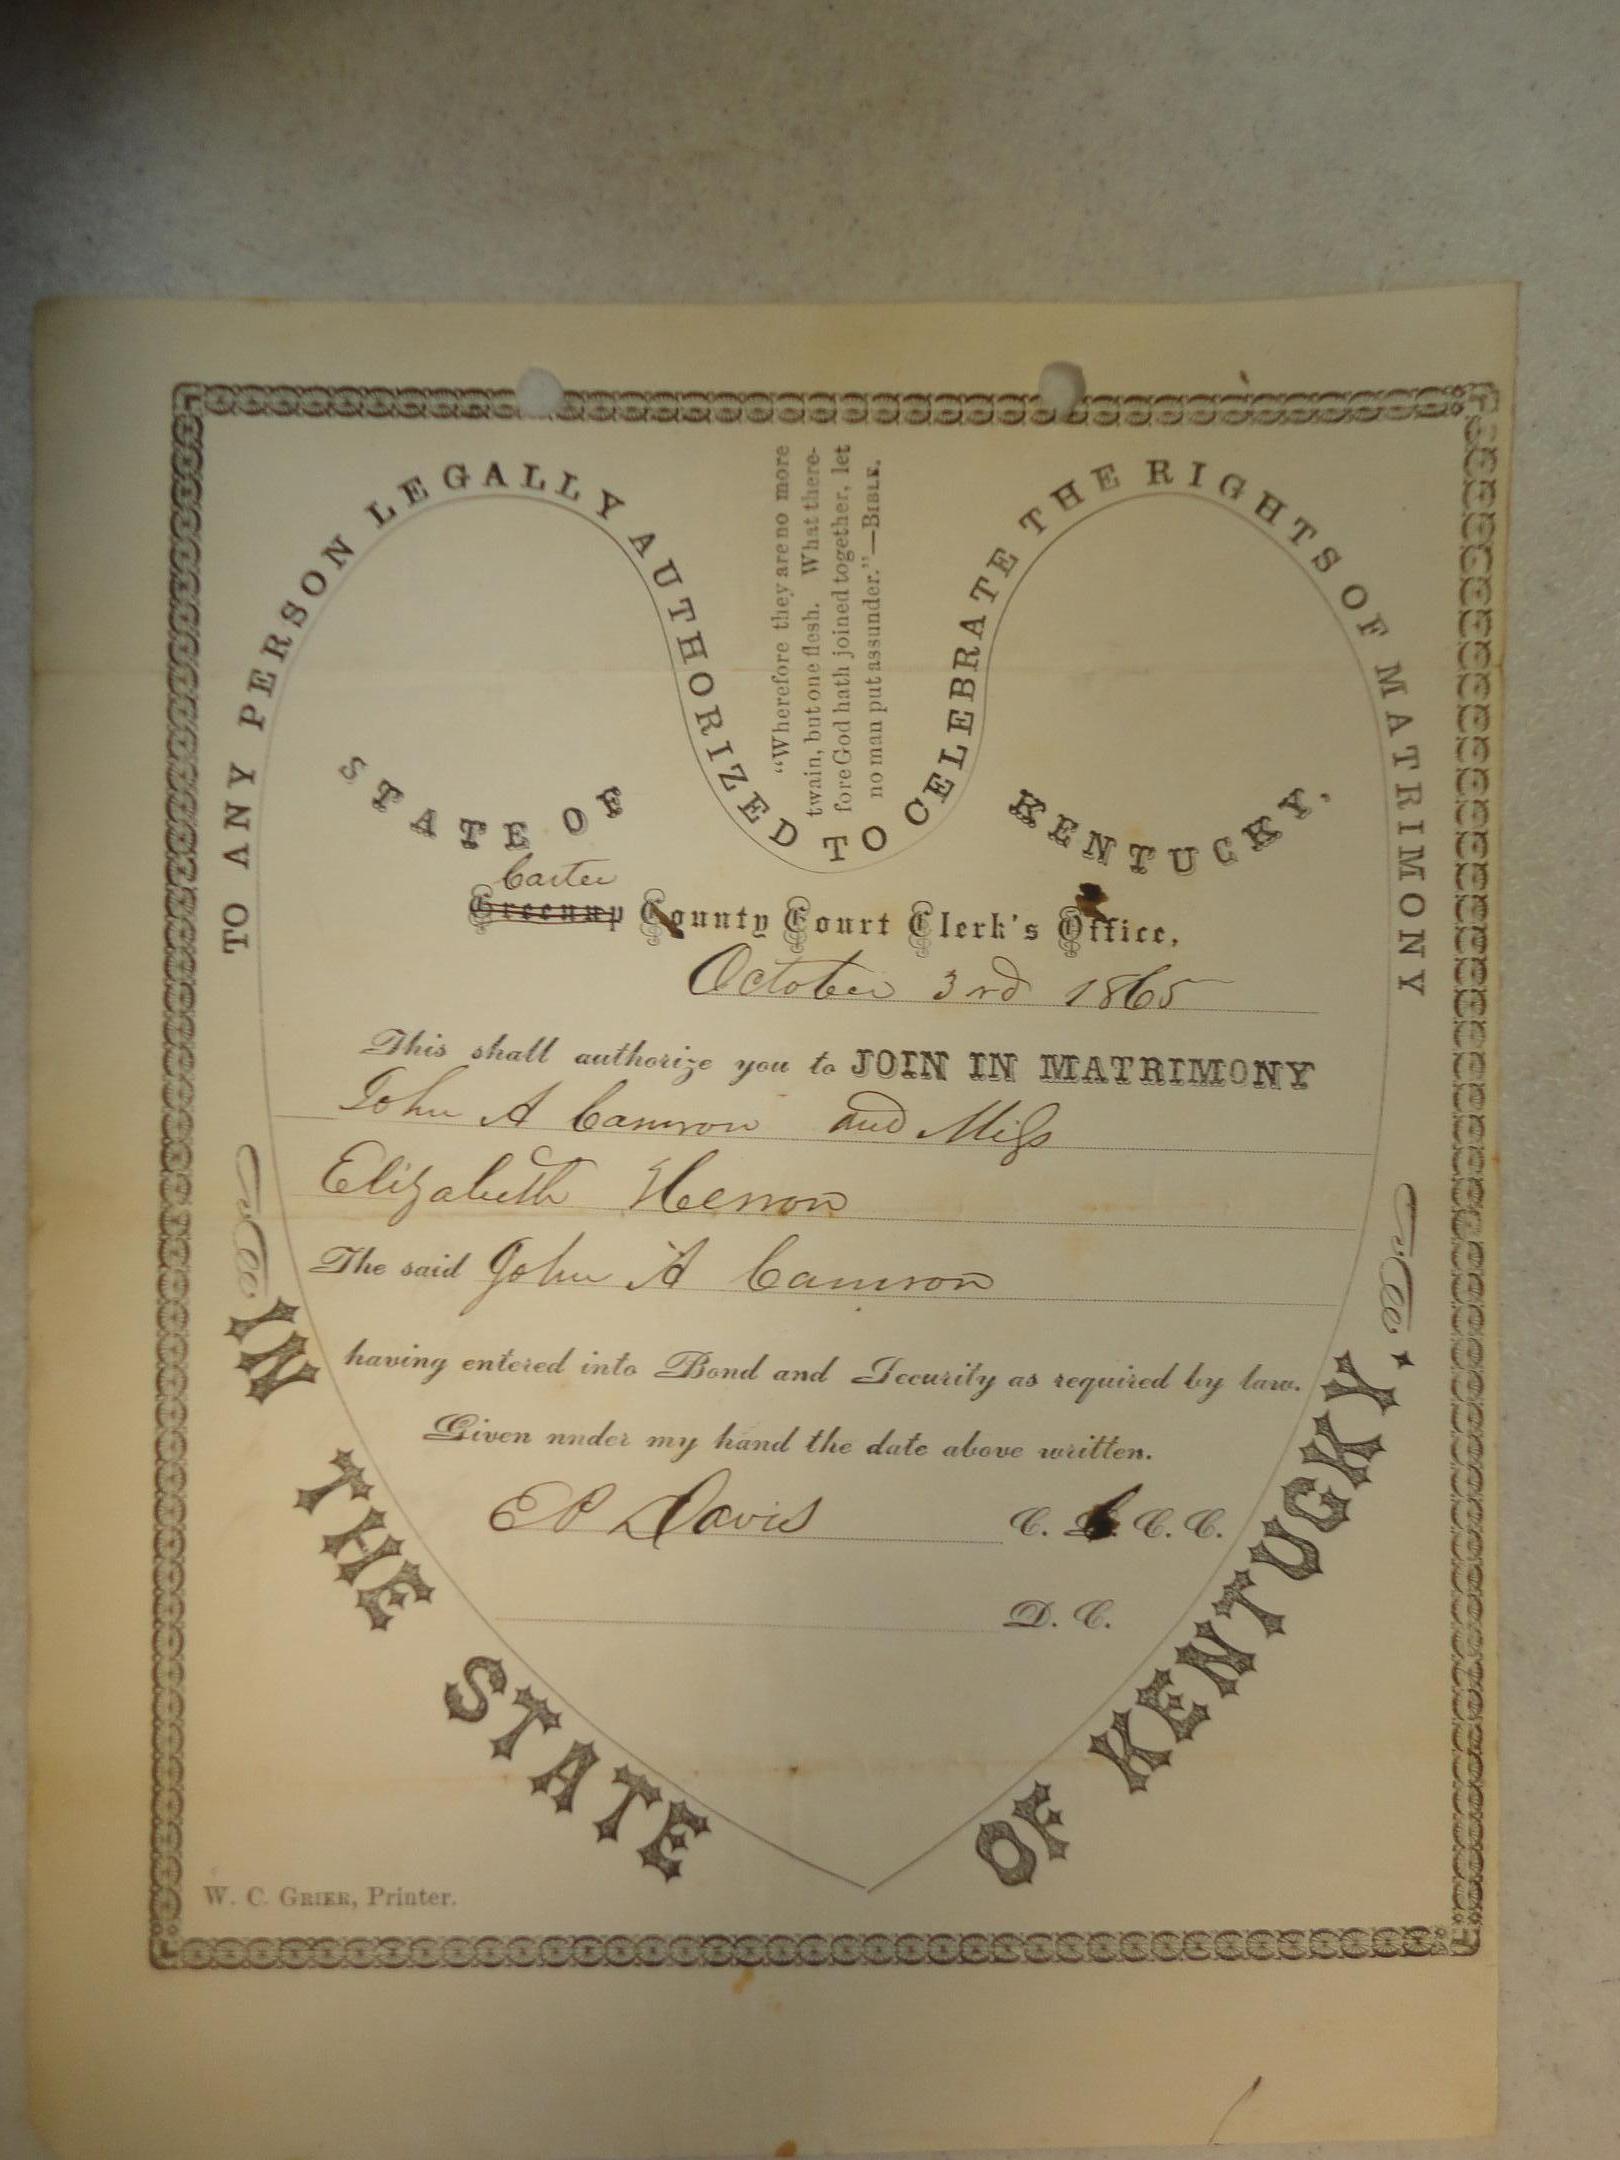 TO ANY PERSON LEGALLY AUTHORIZED TO CELEBRATE THE RIGHTS OF MATRIMONY
"Wherefore they are no more
twain, but one flesh. What there-
fore God hath joined together, let
no man put assunder."—BIBLE.
STATE OF KENTUCKY,
Carter
Greenup County Court Clerk's Office,
October 3rd 1865
This shall authorize you to JOIN IN MATRIMONY
John A Camron and Miss
Elizabeth Herron
The said John A Camron
having entered into Bond and Security as required by law.
Given nnder my hand the date above written.
E P Davis C. C. C. C.
D. C.
IN THE STATE OF KENTUCKY.
W. C. GRIER, Printer.